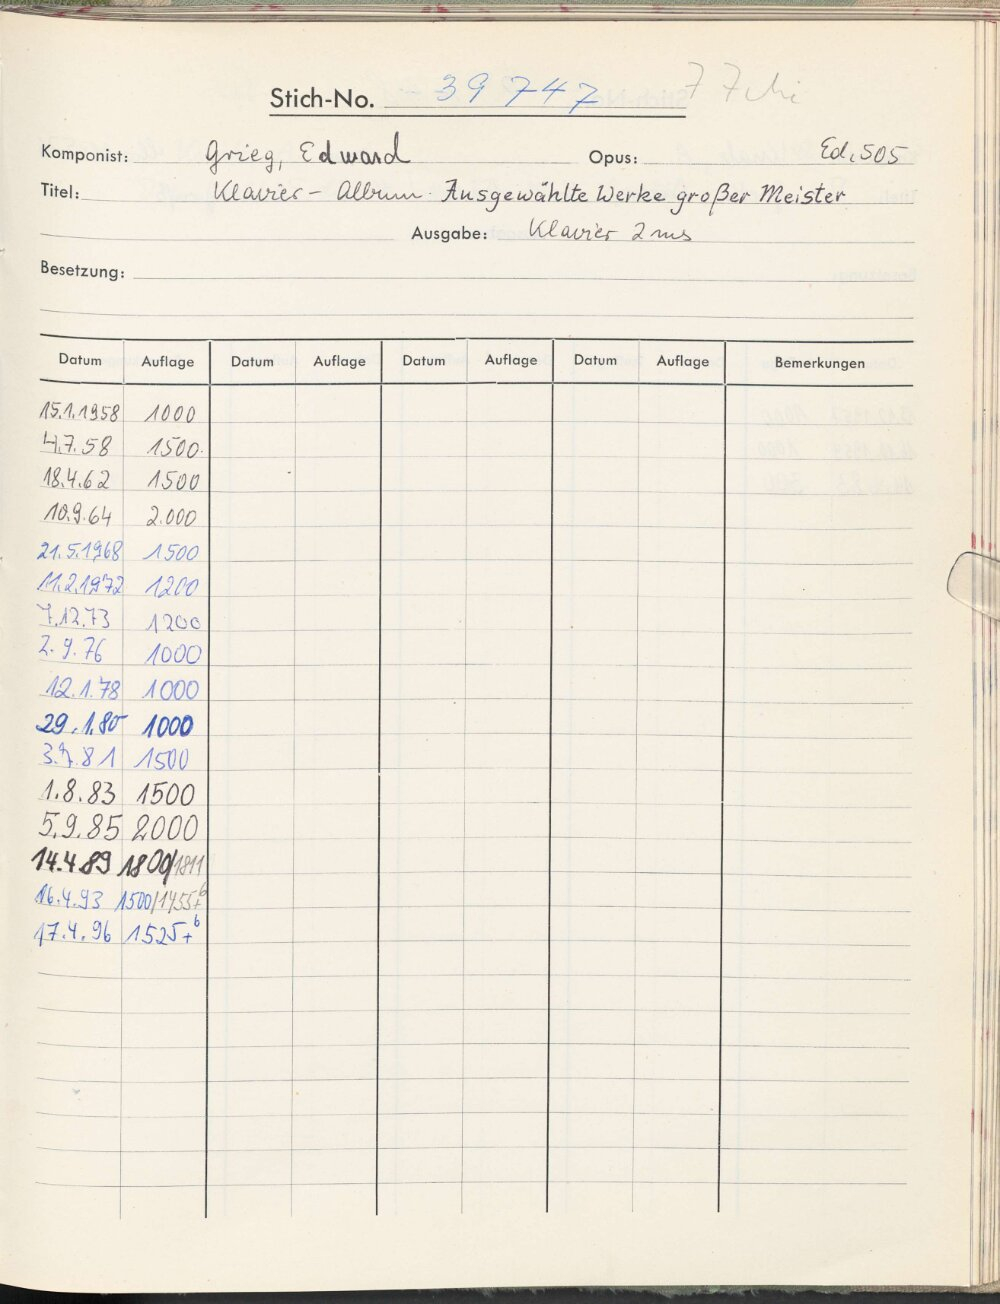 Stich-No. 39747
Komponist: Grieg, Edward Opus: Ed. 505
Titel: Klavier - Album. Ausgewählte Werke großer Meister
Ausgabe: Klavier 2 ms
Besetzung:
Datum Auflage Datum Auflage Datum Auflage Datum Auflage Bemerkungen
15.1.1958 1000
4.7.58 1500
18.4.62 1500
10.9.64 2.000
21.5.1968 1500
11.2.1972 1200
7.12.73 1200
2.9.76 1000
12.1.78 1000
29.1.80 1000
3.7.81 1500
1.8.83 1500
5.9.85 2000
14.4.89 1800/1811
16.4.93 1500/1455+6
17.4.96 1525+6